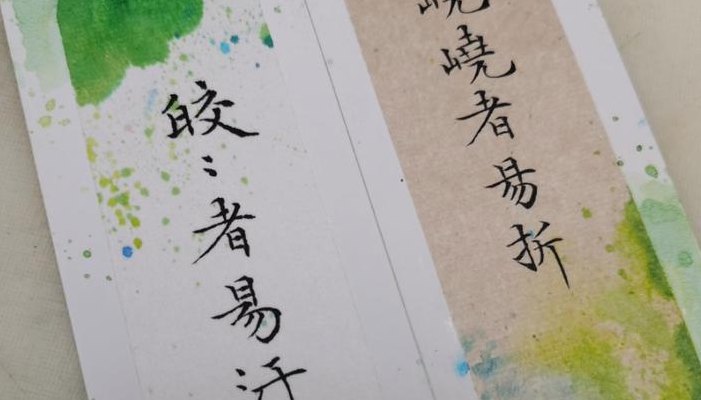 嶢嶢者易折
皎〻者易汙